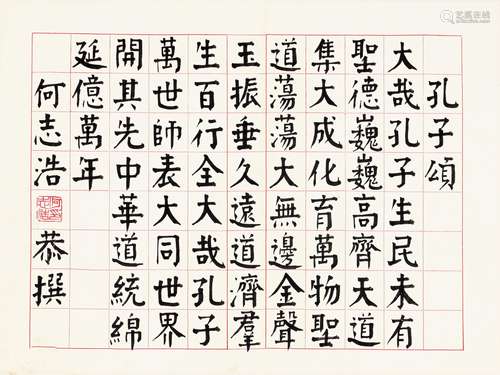 孔子頌
大哉孔子生民未有
聖德巍巍高齊天道
集大成化育萬物聖
道蕩蕩大無邊金聲
玉振垂久遠道濟羣
生百行全大哉孔子
萬世師表大同世界
開其先中華道統綿
延億萬年
何志浩
恭撰